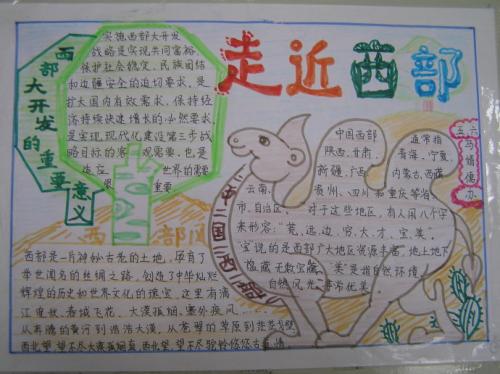 走近西部
西部
大开发
的重要
意义
实施西部大开发
战略是实现共同富裕
保护社会稳定、民族团结
和边疆安全的迫切要求,是
扩大国内有效需求,保持经
济持续快速增长的必然要求,
是实现现代化建设第三步战
略目标的客观需要,也是
世界的需要
重要
五、六
马婧便
办
中国西部
通常指
陕西、甘肃、
青海、宁夏、
新疆、广西、
内蒙古、西藏
云南、
贵州、四川和重庆等省
市、自治区。对于这些地区,有人用八个字
来形容:“荒、远、边、穷、大、才、宝、美”。
宝说的是西部广大地区资源丰富,地上地下
蕴藏无数宝藏,“美”是指自然环境,
自然风光非常优美
西部风
西部是一片神妙古老的土地,孕育了
举世闻名的丝绸之路,创造了中华灿烂
辉煌的历史和世界文化的瑰宝,这里有满
江春秋、春城飞花、大漠孤烟、塞外疾风……
从奔腾的黄河到浩浩大漠,从苍翠的草原到
西北望,望不尽大漠孤烟直,西北望,望不尽驼铃悠悠古